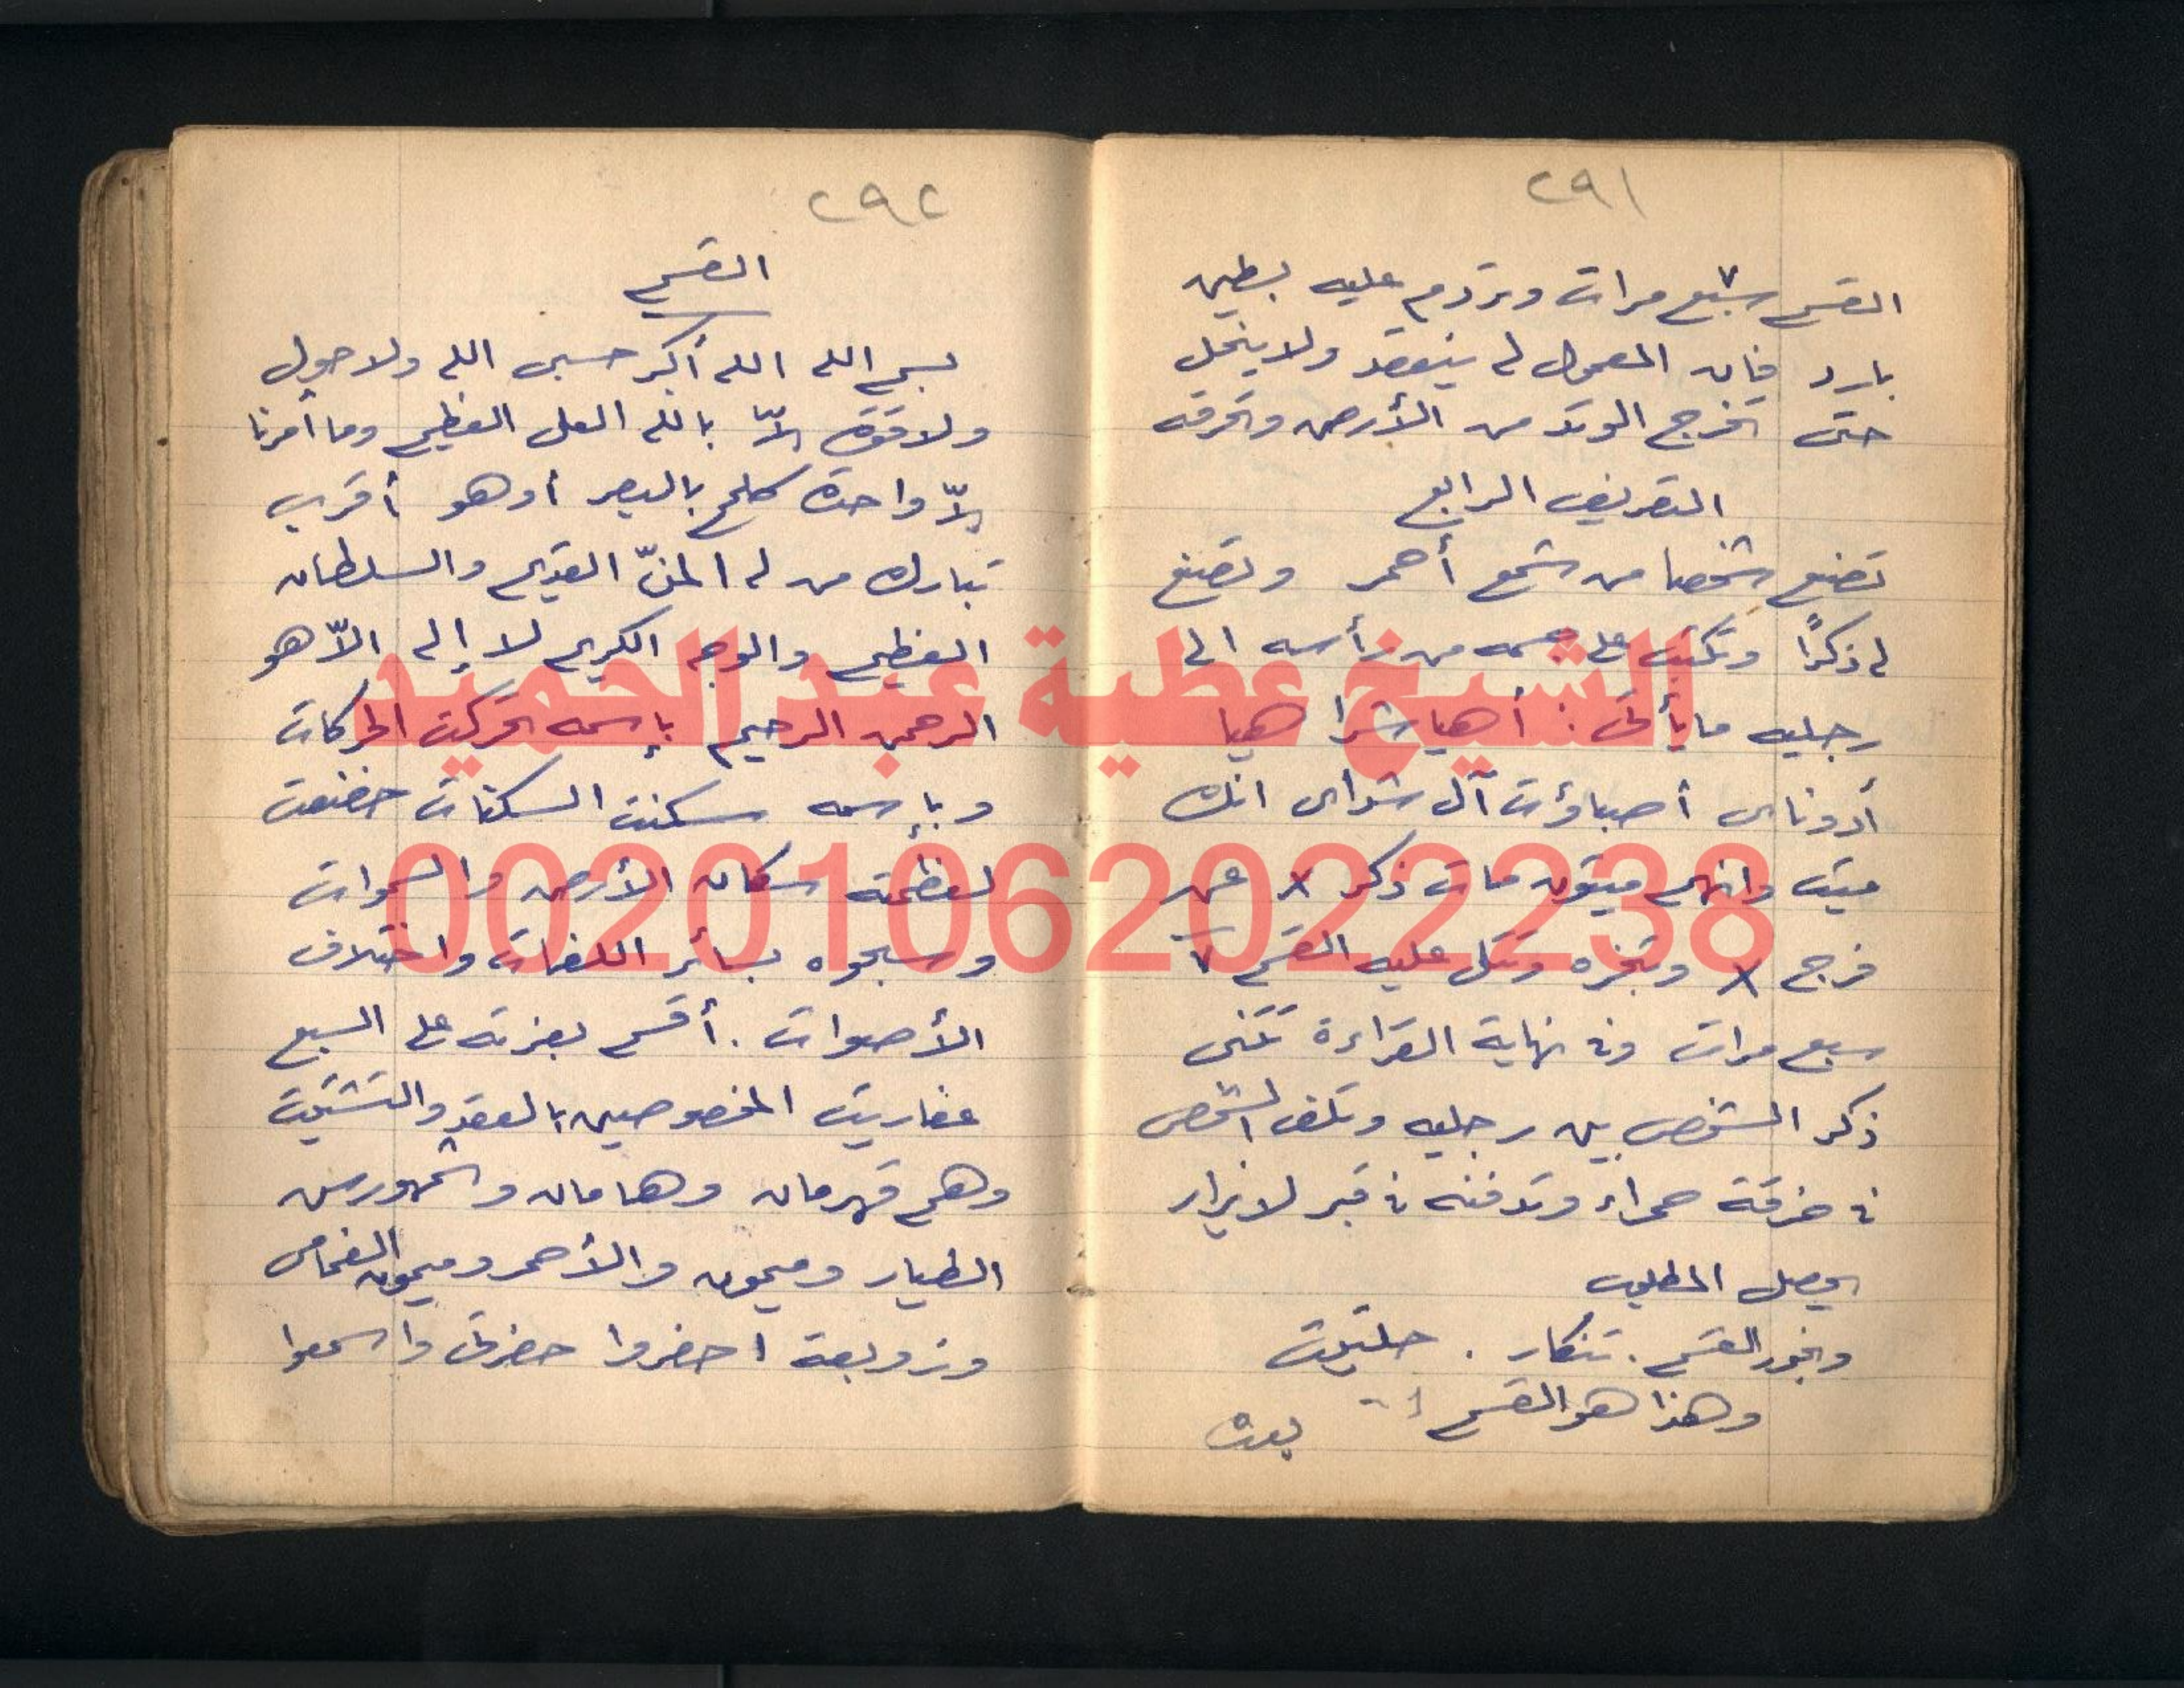 ٢٩١
القسم سبع ٧ مرات وتردم عليه بطين
بارد فإن المعمول له ينعقد ولا ينحل
حتى تخرج الوتد من الأرض وتحرقه
التصريف الرابع
تصنع شخصا من شمع أحمر وتصنع
له ذكرًا وتكتب على جسمه من رأسه الى
رجليه ما يأتى : أهيا شرا هيا
أدوناى أصباؤت آل شداى انك
ميت وانهم ميتون مات ذكر x عن
فرج x وتبخره وتتلى عليه القسم ٧
سبع مرات وفى نهاية القراءة تثنى
ذكر الشخص بين رجليه وتلف الشخص
فى خرقة حمراء وتدفنه فى قبر لا يزار
يحصل المطلوب
وبخور القسم . تنكار . حلتيت
وهذا هو القسم
بعده
٢٩٢
القسم
بسم الله الله أكبر حسبى الله ولا حول
ولا قوة إلاّ بالله العلى العظيم وما أمرنا
إلاّ واحدة كلمح بالبصر أو هو أقرب
تبارك من له المنّ القديم والسلطان
العظيم والوجه الكريم لا إله الاّ هو
الرحمن الرحيم بإسمه تحركت الحركات
وبإسمه سكنت السكنات خضعت
لعظمته سكان الأرض والسموات
وسبحوه بسائر اللغات واختلاف
الأصوات . أقسم بعزته على السبع
عفاريت المخصوصين بالعقد والتشتيت
وهم قهرمان وهامان وشمهورس
الطيار وميمون والأحمر وميمون الغمامى
وزوبعة احضروا حضرتى واسمعوا
الشيخ عطية عبد الحميد
00201062022238